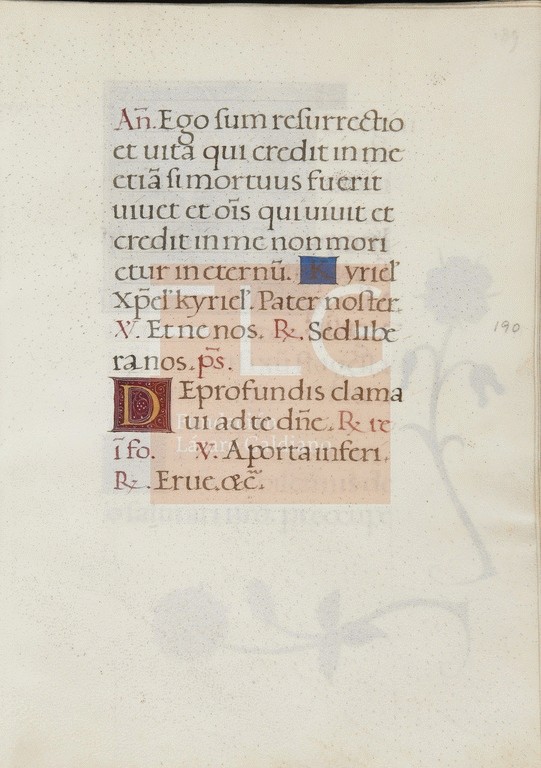 89
Añ. Ego sum resurrectio
et uita qui credit in me
etiã si mortuus fuerit
uiuet et oīs qui uiuit et
credit in me non mori
etur in eternũ. Kyriel'
Xp̄el' kyriel'. Pater noster.
V. Et ne nos. R. Sed libe
ra nos. p̄s.
De profundis clama
ui ad te dñe. R. re
ī fo. V. A porta inferi.
R. Erue. &c̃.
190
FLC
Fundación
Lázaro Galdiano